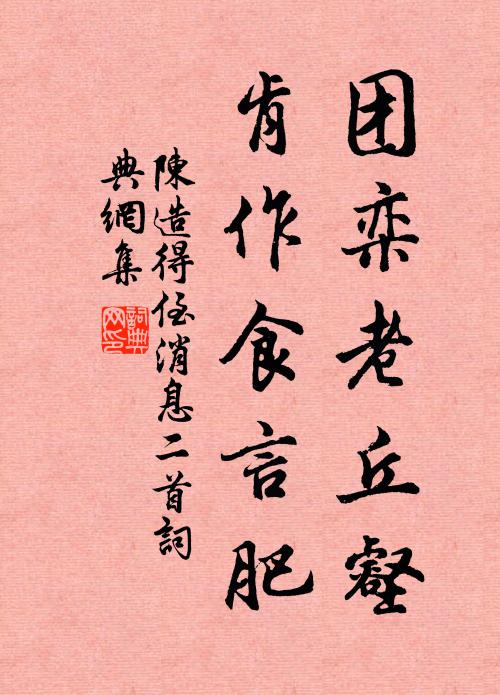 团栾老丘壑
肯作食言肥
陳造得侄消息二首詞
典網集
詞典
网印